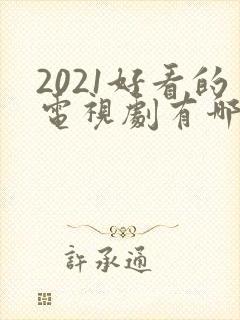 2021好看的
電視劇有哪
許承通